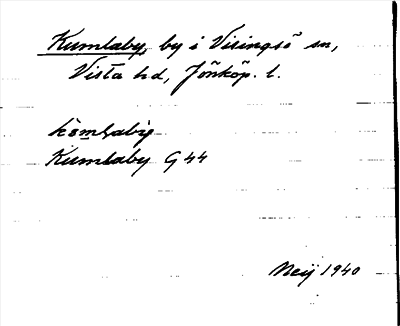 Kumlaby, by i Visingsö sn,
Vista hd, Jönköp. l.
Kumlaby G 44
Neij 1940